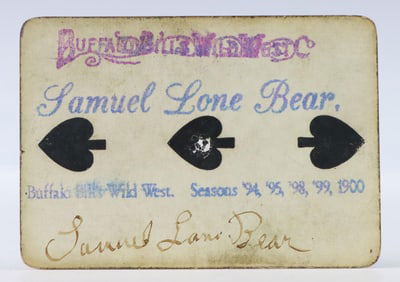 BUFFALO BILL'S WILD WEST CO
Samuel Lone Bear.
Buffalo Bill's Wild West. Seasons '94, '95, '98, '99, 1900
Samuel Lone Bear